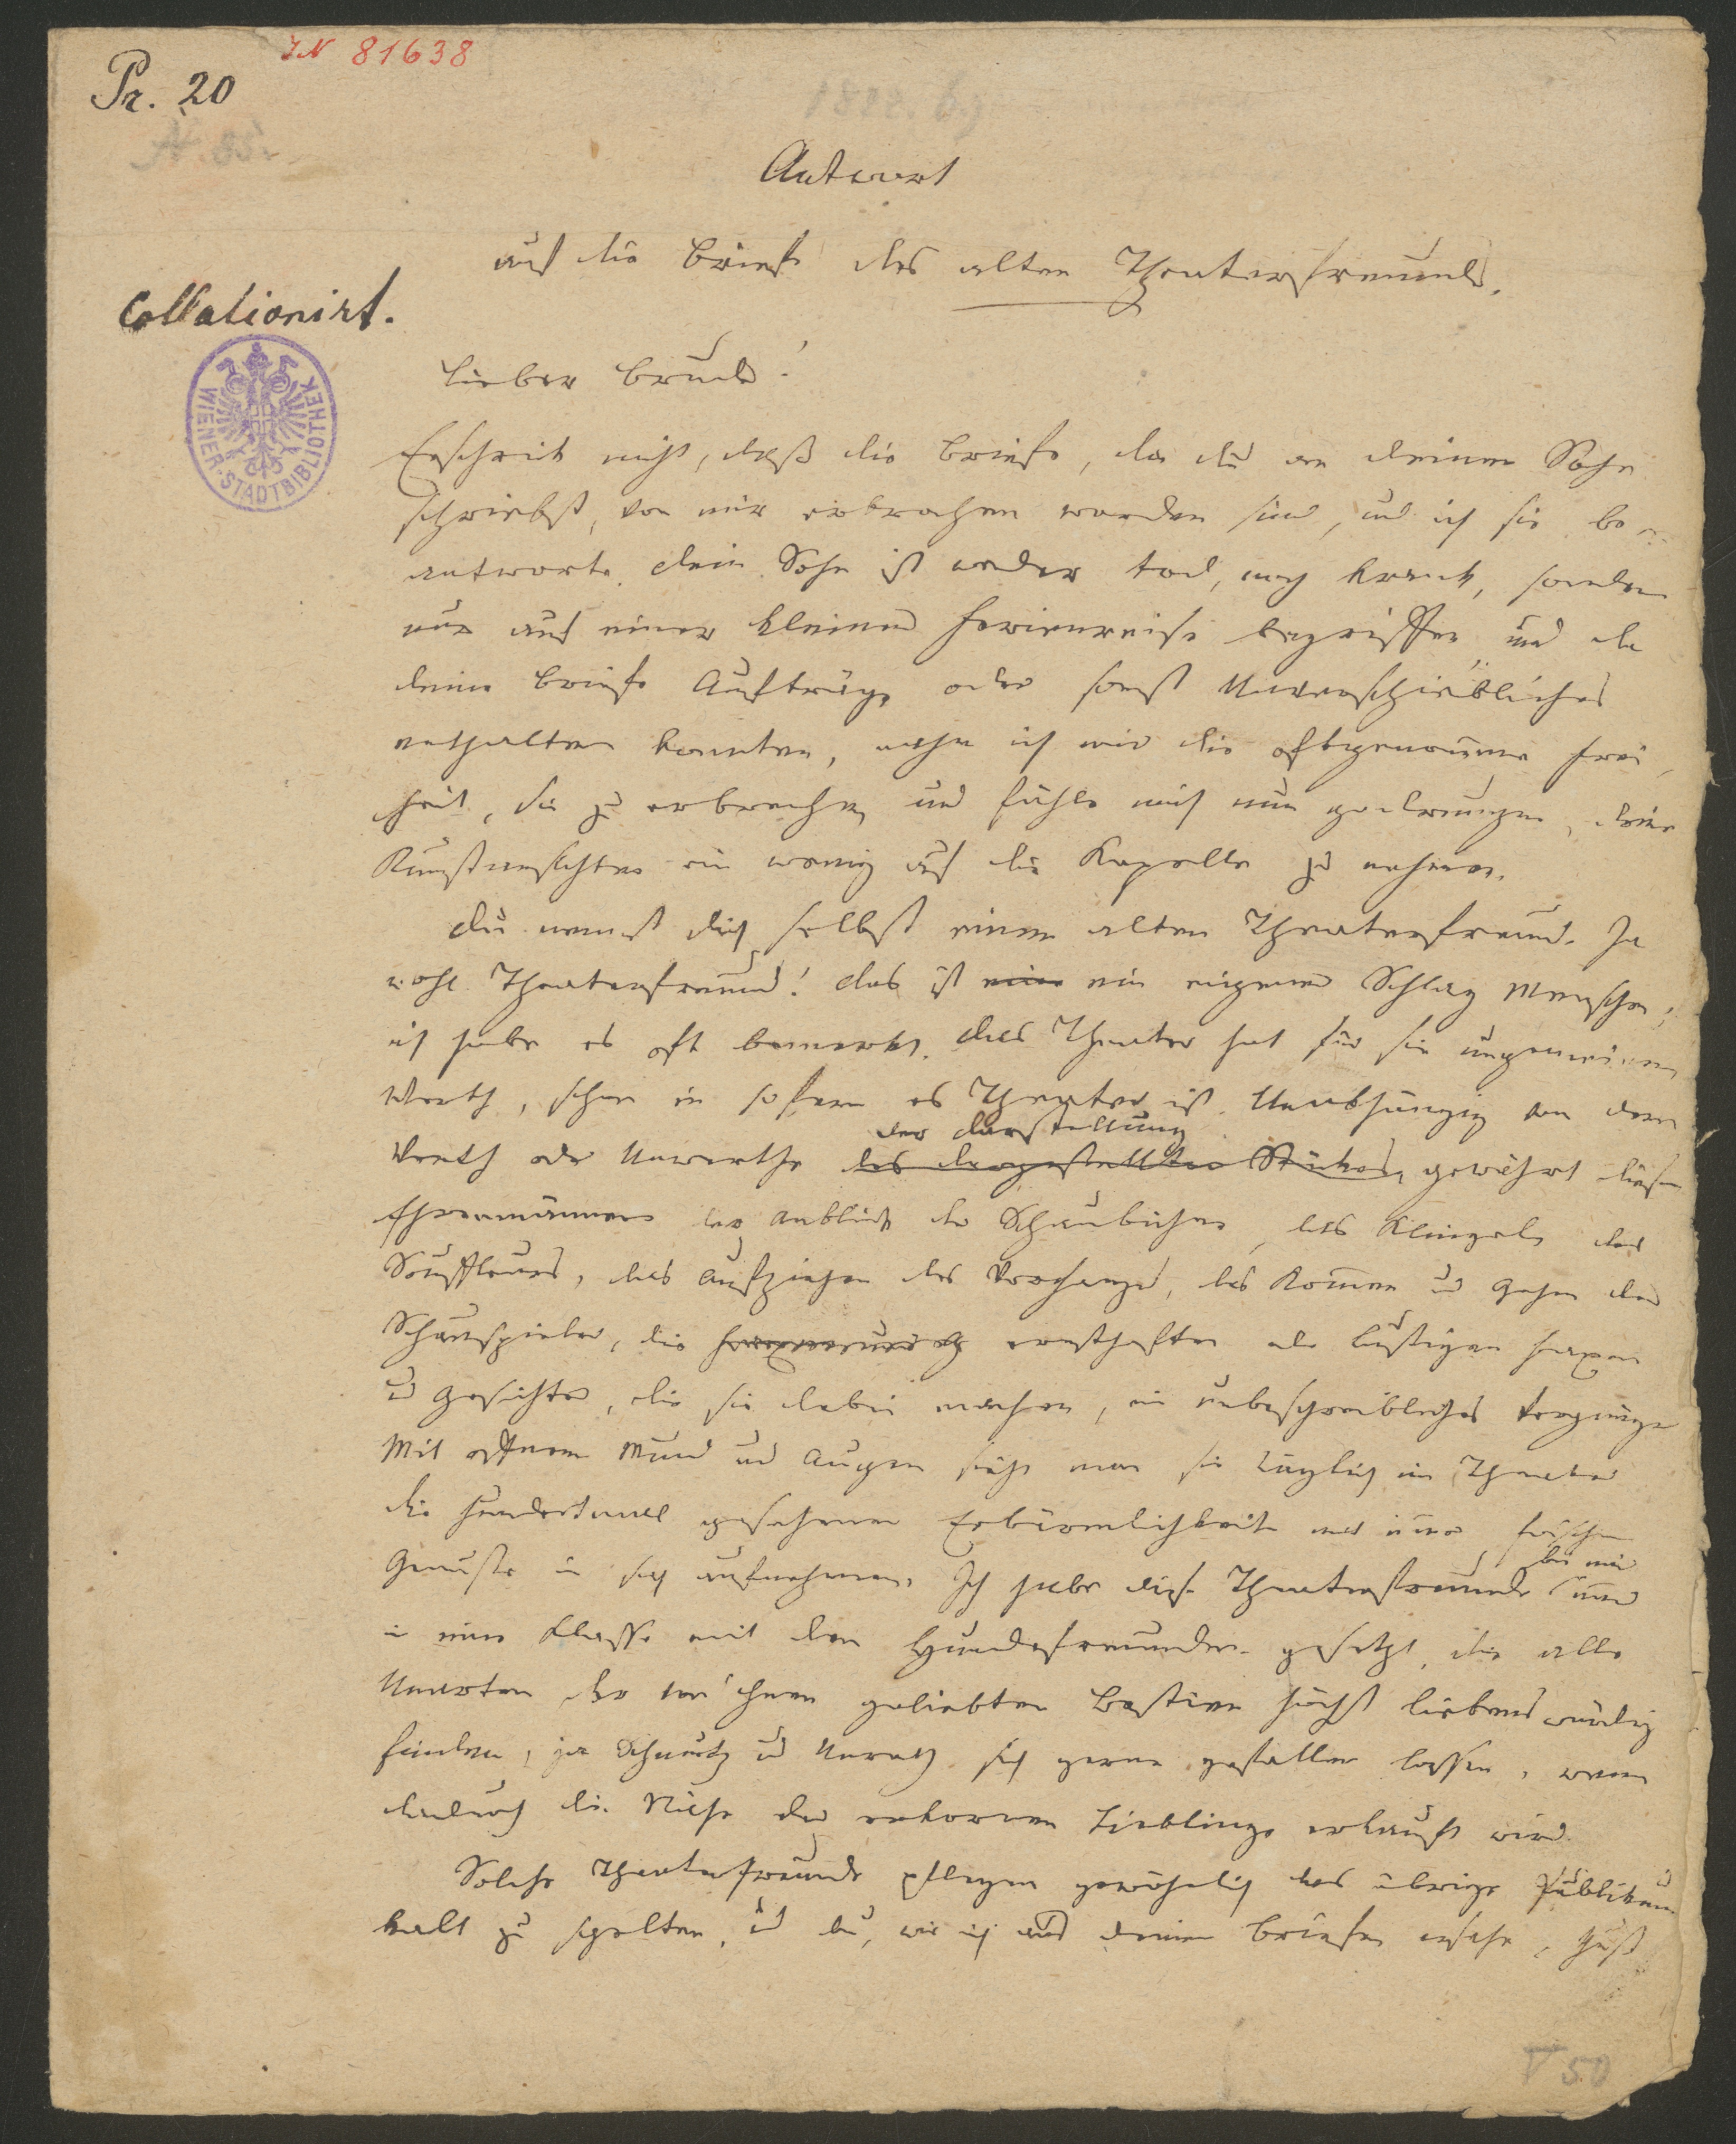 IN 81638
Pr. 20
Antwort
auf die Briefe des alten Theaterfreunds.
Collationirt.
WIENER-STADTBIBLIOTHEK
Lieber Bruder!
Erschrick nicht, daß die Briefe, die du an deinen Sohn
schriebst, von mir erbrochen worden sind, und ich sie be
antworte. dein Sohn ist weder tod, noch krank, sondern
nur auf einer kleinen Ferienreise begriffen und da
deine Briefe Aufträge oder sonst Unverschiebliches
enthalten konnten, nahm ich mir die oftgenommene Frei
heit, sie zu erbrechen und fühle mich nun gedrungen, deine
Kunstansichten ein wenig auf die Kapelle zu nehmen.
Du nennst dich selbst einen alten Theaterfreund. Ja
wohl Theaterfreund! das ist eine ein eigener Schlag Menschen,
ich habe es oft bemerkt. das Theater hat für sie ungemeinen
Werth, schon in sofern es Theater ist. Unabhängig von dem
der Darstellung
Werth oder Unwerthe des dargestellten Stückes, gewährt diesen
Ehrenmännern der Anblick der Schaubühne, das Klingeln des
Souffleurs, das Aufziehen des Vorhangs, das Kommen u Gehen der
Schauspieler, die ernsthaften oder lustigen Faxen
u Gesichter, die sie dabei machen, ein unbeschreibliches Vergnügen
Mit offnem Mund und Augen sieht man sie täglich im Theater
die hundertmal gesehenen Erbärmlichkeiten mit immer frischem
Genusse in sich aufnehmen. Ich habe diese Theaterfreunde immer
bei mir
in eine Klasse mit den Hundefreunden gesetzt, die alle
Unarten der von ihnen geliebten Bestien höchst liebenswürdig
finden, ja Schmutz u Unrath sich gerne gefallen lassen, wenn
dadurch die Nähe der erkornen Lieblinge erkauft wird.
Solche Theaterfreunde pflegen gewöhnlich das übrige Publikum
kalt zu schelten, u du, wie ich aus deinen Briefen ersehe, thust
V 50